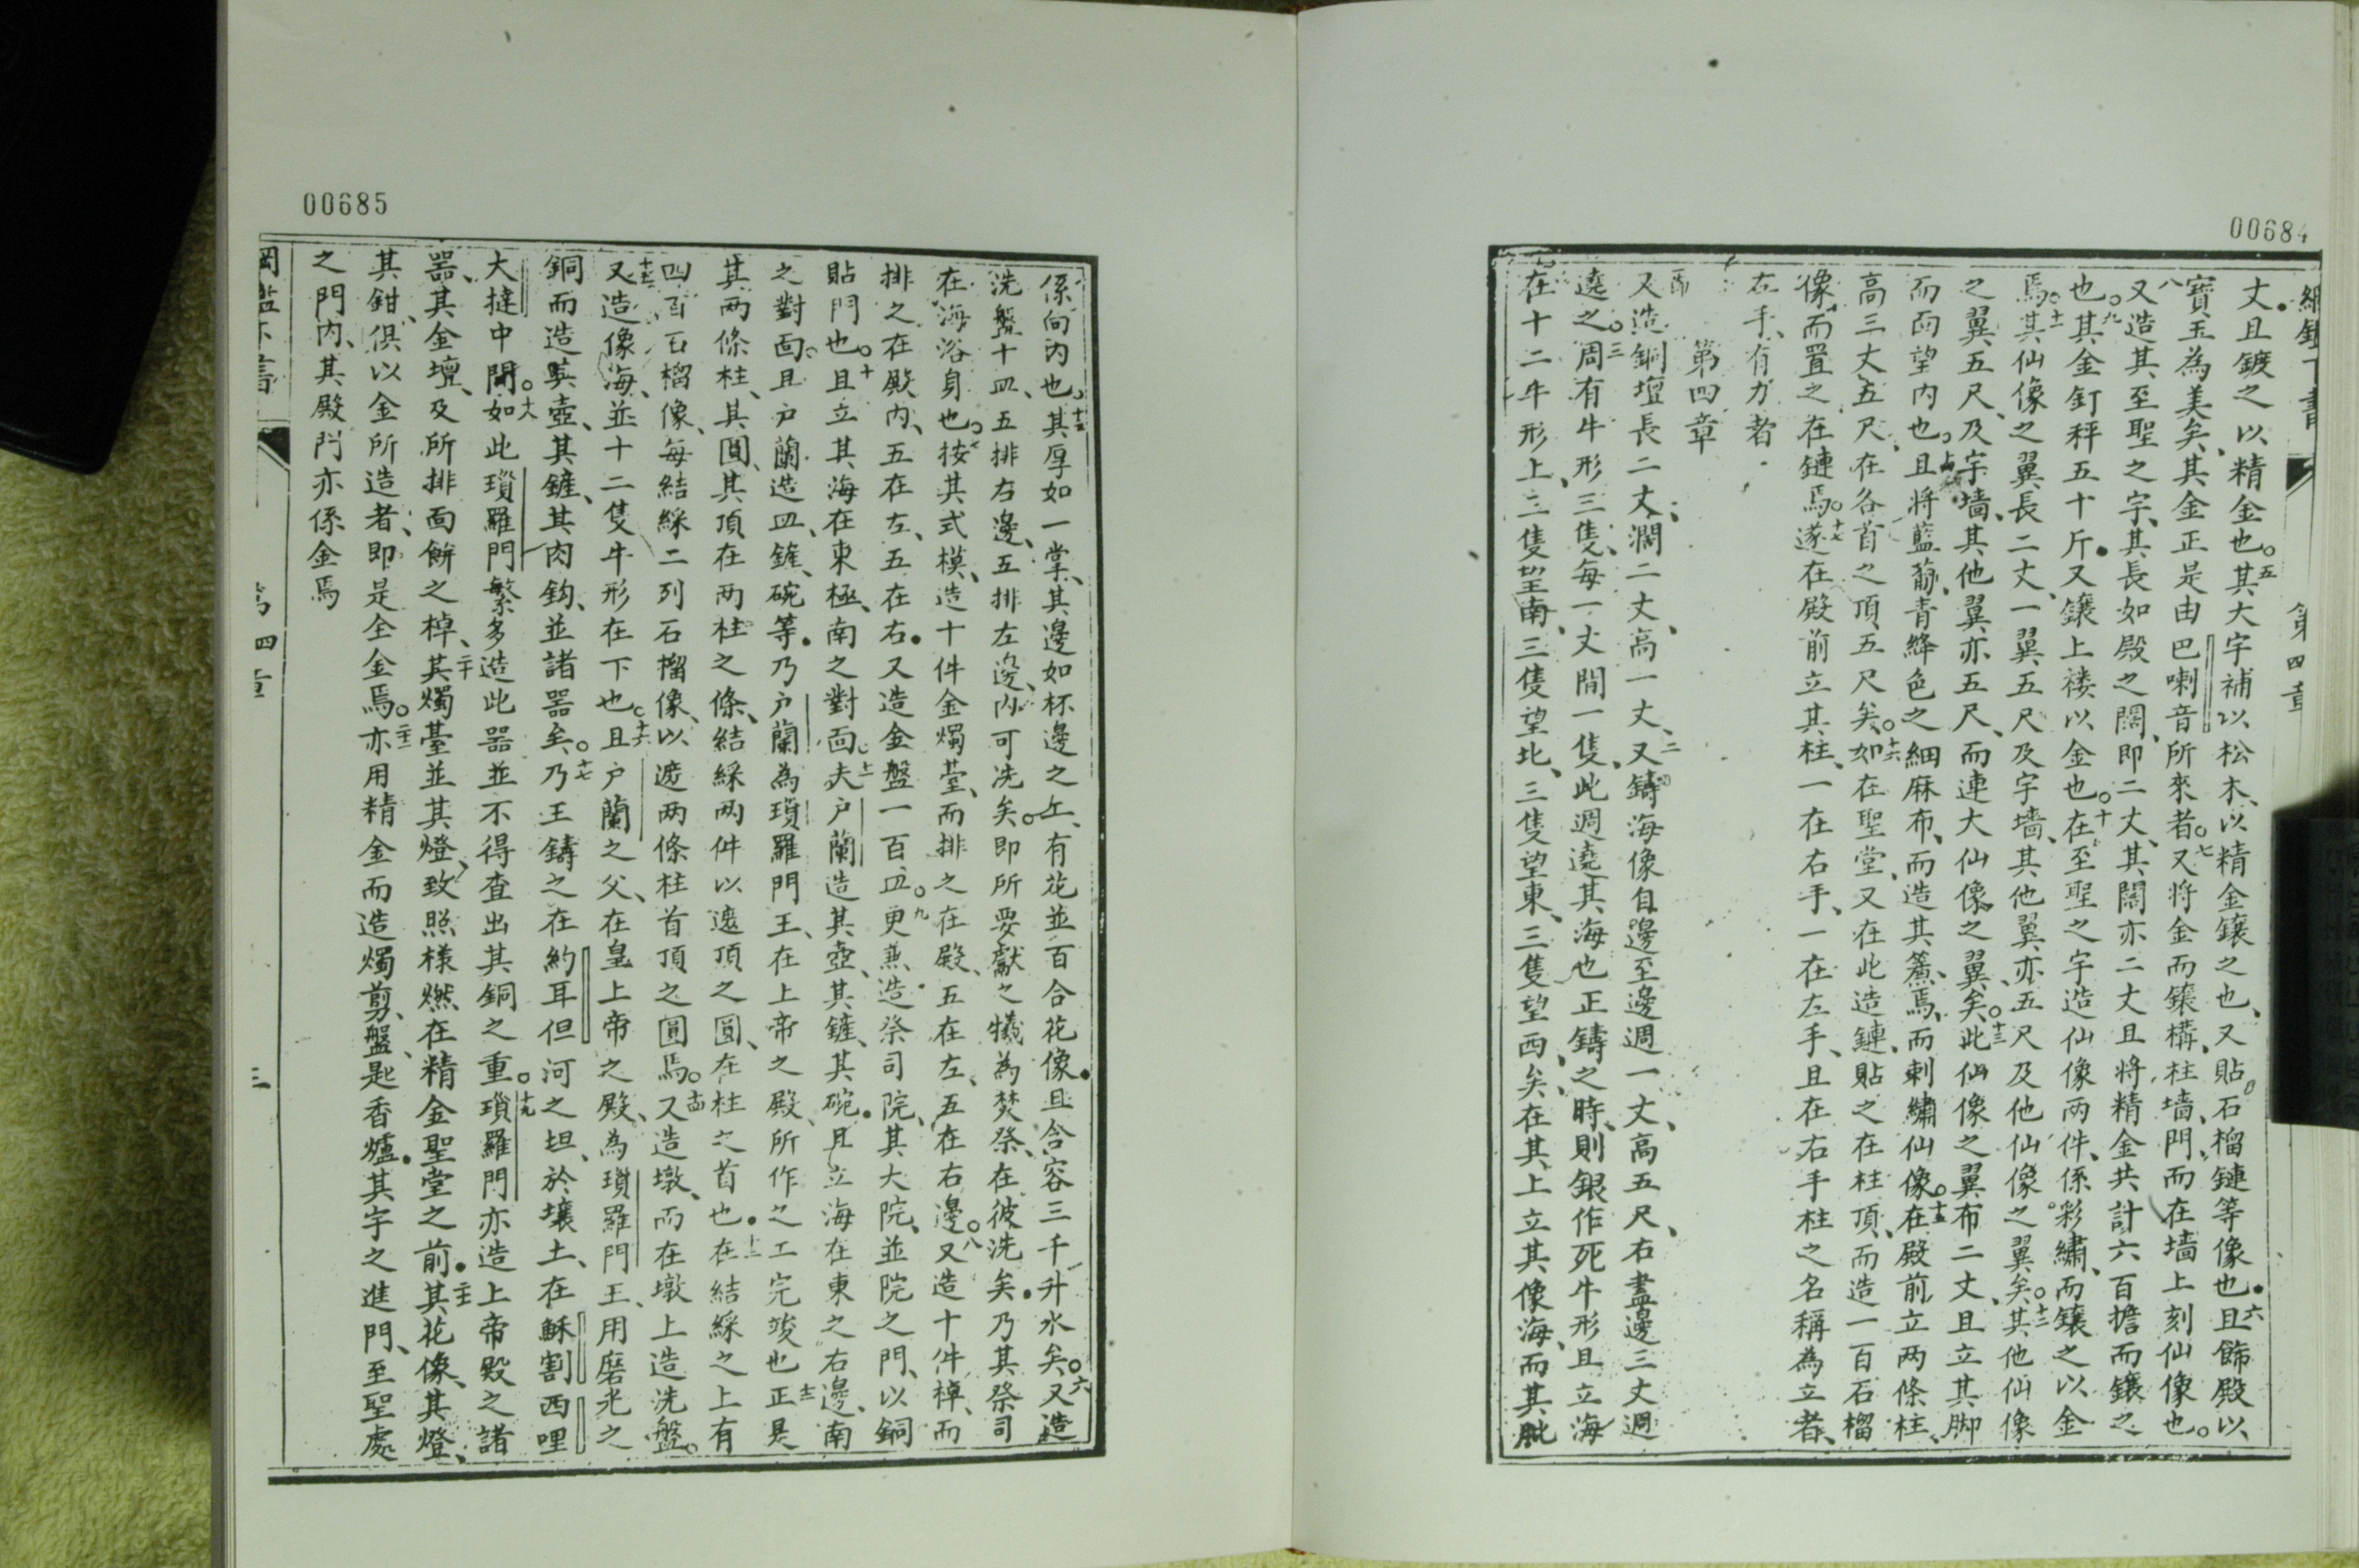 00684
丈且鍍之以精金也五其大宇補以松木以精金鑲之也又貼石榴鏈等像也六且飾殿以
寶玉為美矣其金正是由巴喇音所來者七又將金而鑲構柱墻門而在墻上刻仙像也
八又造其至聖之宇其長如殿之闊即二丈其闊亦二丈且將精金共計六百擔而鑲之
也九其金釘秤五十斤又鑲上褸以金也十在至聖之宇造仙像兩件係彩繡而鑲之以金
焉十一其仙像之翼長二丈一翼五尺及宇墻其他翼亦五尺及他仙像之翼矣十二其他仙像
之翼五尺及宇墻其他翼亦五尺而連大仙像之翼矣十三此仙像之翼布二丈且立其脚
而面望内也十四且將藍葡青絳色之細麻布而造其簾焉而刺繡仙像十五在殿前立两條柱
高三丈五尺在各首之頂五尺矣十六如在聖堂又在此造鏈貼之在柱頂而造一百石榴
像而置之在鏈焉十七遂在殿前立其柱一在右手一在左手且在右手柱之名稱為立者
左手有力者
第四章
又造銅壇長二丈濶二丈高一丈二又鑄海像自邊至邊週一丈高五尺右畫邊三丈週
遶之三周有牛形三隻每一丈間一隻此週遶其海也正鑄之時則銀作死牛形且立海
在十二牛形上三隻望南三隻望北三隻望東三隻望西矣在其上立其像海而其
第四章
00685
係向内也十五其厚如一掌其邊如杯邊之 有花並百合花像且含容三千升水矣六又造
洗盤十皿五排右邊五排左邊内可洗矣即所要獻之犧為焚祭在彼洗矣乃其祭司
在海浴身也七按其式模造十件金燭臺而排之在殿五在左五在右邊八又造十件棹而
排之在殿内五在左五在右又造金盤一百皿九更兼造祭司院其大院並院之門以銅
貼門也十且立其海在東極南之對面十一夫户蘭造其壺其鏟其碗且立海在東之右邊南
之對面且户蘭造皿鏟碗等乃户蘭為瑣羅門王在上帝之殿所作之工完竣也十二正是
其两條柱其圓其頂在两柱之條結綵两件以遮頂之圓在柱之首也十三在結綵之上有
四百石榴像每結綵二列石榴像以遮两條柱首頂之圓焉十四又造墩而在墩上造洗盤
十五又造像海並十二隻牛形在下也十六且户蘭之父在皇上帝之殿為瑣羅門王用磨光之
銅而造其壺其鏟其肉鈎並諸器矣十七乃王鑄之在約耳但河之坦於壤土在穌割西哩
大撻中間十八如此瑣羅門繁多造此器並不得查出其銅之重十九瑣羅門亦造上帝殿之諸
器其金壇及所排面餅之棹二十其燭臺並其燈致照樣燃在精金聖堂之前二十一其花像其燈
其鉗俱以金所造者即是全金焉二十二亦用精金而造燭剪盤匙香爐其宇之進門至聖處
之門内其殿門亦係金焉
第四章
三